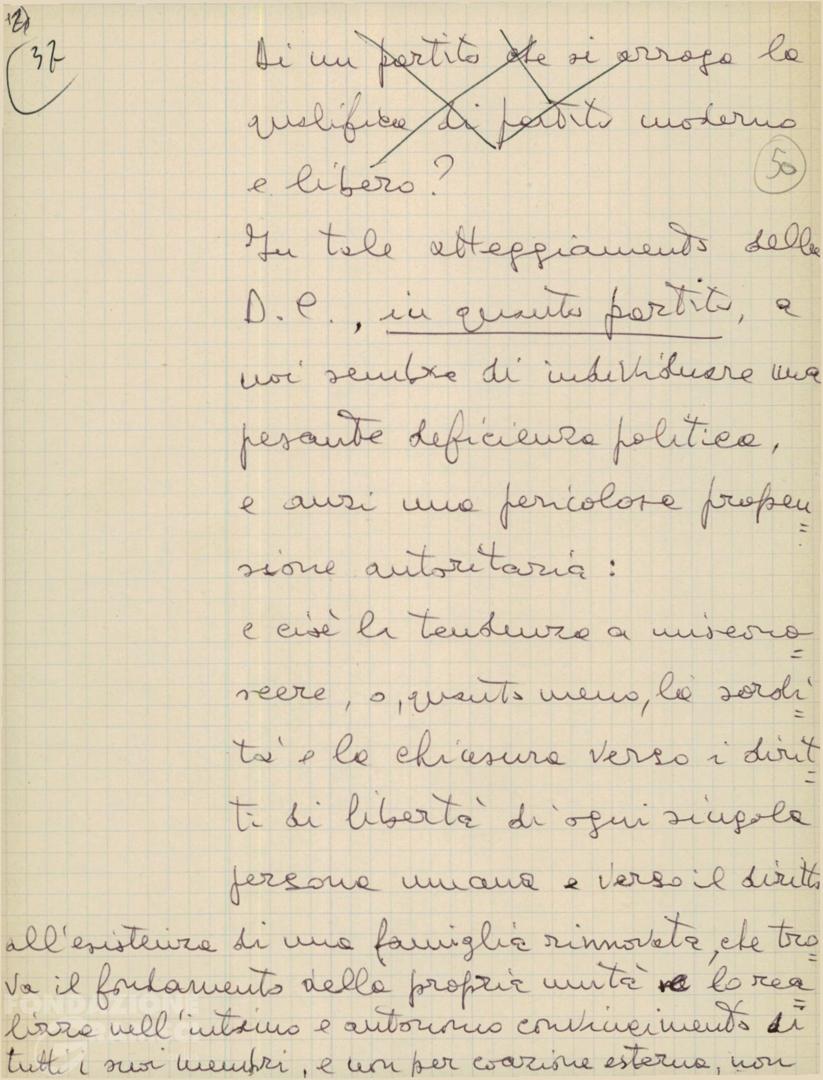 2)
37
Di un partito che si arroga la
qualifica di partito moderno
50
e libero?
In tale atteggiamento della
D.C., in quanto partito, a
noi sembra di individuare una
pesante deficienza politica,
e anzi una pericolosa propen=
sione autoritaria:
e cioè la tendenza a miscono=
scere, o, quanto meno, la sordi=
tà e la chiusura verso i dirit=
ti di libertà di ogni singola
persona umana e verso il diritto
all'esistenza di una famiglia rinnovata, che tro=
va il fondamento della propria unità e lo rea=
lizza nell'intimo e autonomo convincimento di
tutti i suoi membri, e non per coazione esterna, non
FONDAZIONE